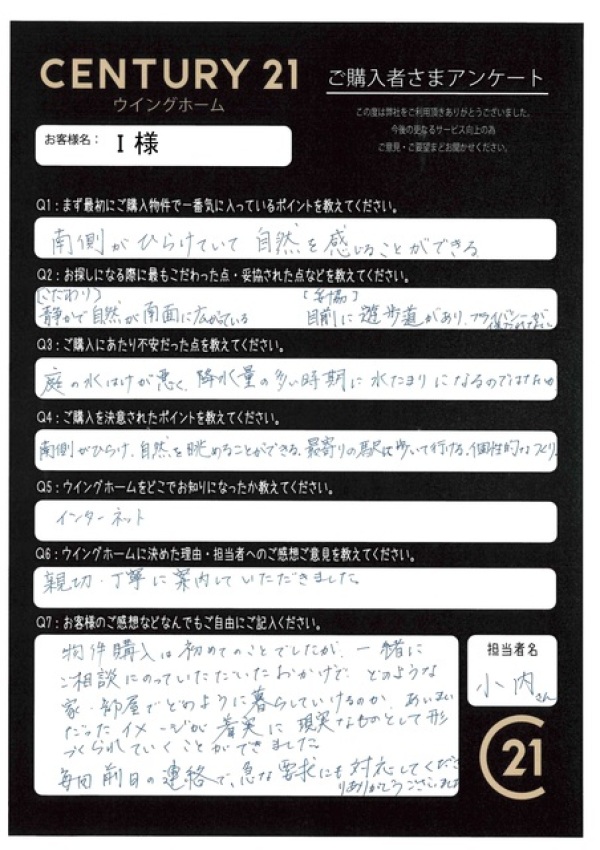 CENTURY 21
ウイングホーム
ご購入者さまアンケート
この度は弊社をご利用頂きありがとうございました。
今後の更なるサービス向上の為
ご意見・ご要望までお聞かせください。
お客様名： I 様
Q1：まず最初にご購入物件で一番気に入っているポイントを教えてください。
南側がひらけていて自然を感じることができる
Q2：お探しになる際に最もこだわった点・妥協された点などを教えてください。
[こだわり] [妥協]
静かで自然が南面に広がっている 目前に遊歩道があり、プライバシーが
Q3：ご購入にあたり不安だった点を教えてください。
庭の水はけが悪く、降水量の多い時期に水たまりになるのではないか
Q4：ご購入を決意されたポイントを教えてください。
南側がひらけ、自然を眺めることができる、最寄りの駅に歩いて行ける、個性的なつくり。
Q5：ウイングホームをどこでお知りになったか教えてください。
インターネット
Q6：ウイングホームに決めた理由・担当者へのご感想ご意見を教えてください。
親切・丁寧に案内していただきました。
Q7：お客様のご感想などなんでもご自由にご記入ください。
物件購入は初めてのことでしたが、一緒に
ご相談にのっていただいたおかげで、どのような
家・部屋でどのように暮らしていけるのか、あいまい
だったイメージが着実に現実なものとして形
づくられていくことができました。
毎回前日の連絡で、急な要求にも対応してくださ
りありがとうございました
担当者名
小内さん
C21